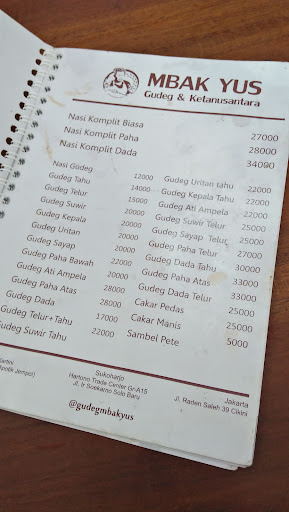 MBAK YUS
Gudeg & Ketanusantara
Nasi Komplit Biasa 27000
Nasi Komplit Paha 28000
Nasi Komplit Dada 34000
Nasi Gudeg 12000
Gudeg Tahu 14000
Gudeg Telur 15000
Gudeg Suwir 20000
Gudeg Kepala 20000
Gudeg Uritan 20000
Gudeg Sayap 20000
Gudeg Paha Bawah 22000
Gudeg Ati Ampela 22000
Gudeg Paha Atas 28000
Gudeg Dada 28000
Gudeg Telur+Tahu 17000
Gudeg Suwir Tahu 22000
Gudeg Uritan tahu 22000
Gudeg Kepala Tahu 22000
Gudeg Ati Ampela 22000
Gudeg Suwir Telur 25000
Gudeg Sayap Telur 25000
Gudeg Paha Telur 27000
Gudeg Dada Tahu 30000
Gudeg Paha Atas 33000
Gudeg Dada Telur 33000
Cakar Pedas 25000
Cakar Manis 25000
Sambel Pete 5000
Jempol)
Sukoharjo
Hartono Trade Center Gr-A15
Jl. Ir Soekarno Solo Baru
Jakarta
Jl. Raden Saleh 39 Cikini
@gudegmbakyus